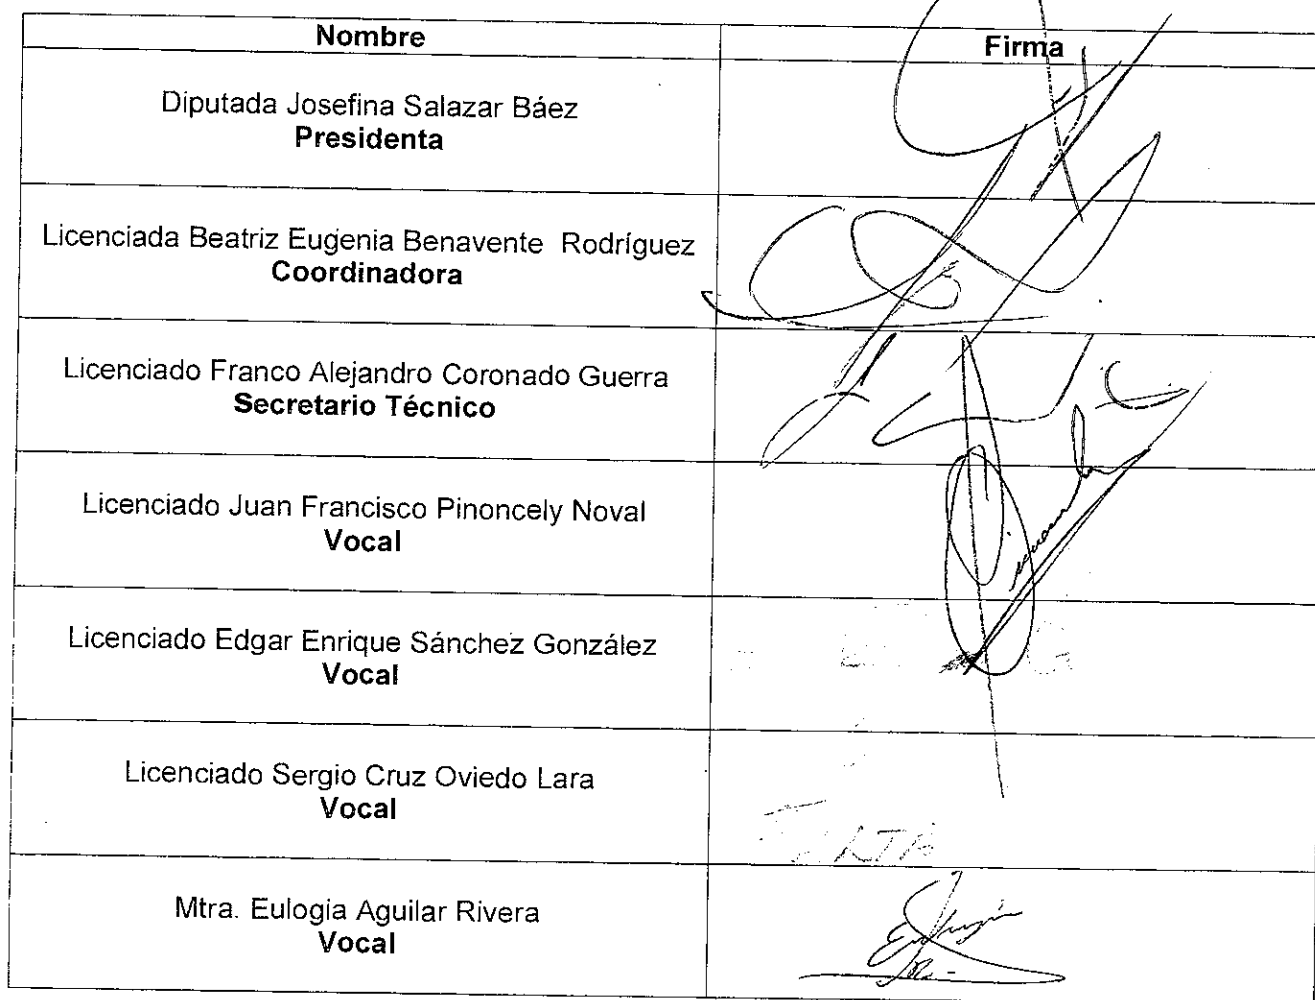 Nombre
Firma
Diputada Josefina Salazar Báez
Presidenta
Licenciada Beatriz Eugenia Benavente Rodríguez
Coordinadora
Licenciado Franco Alejandro Coronado Guerra
Secretario Técnico
Licenciado Juan Francisco Pinoncely Noval
Vocal
Licenciado Edgar Enrique Sánchez González
Vocal
Licenciado Sergio Cruz Oviedo Lara
Vocal
Mtra. Eulogia Aguilar Rivera
Vocal